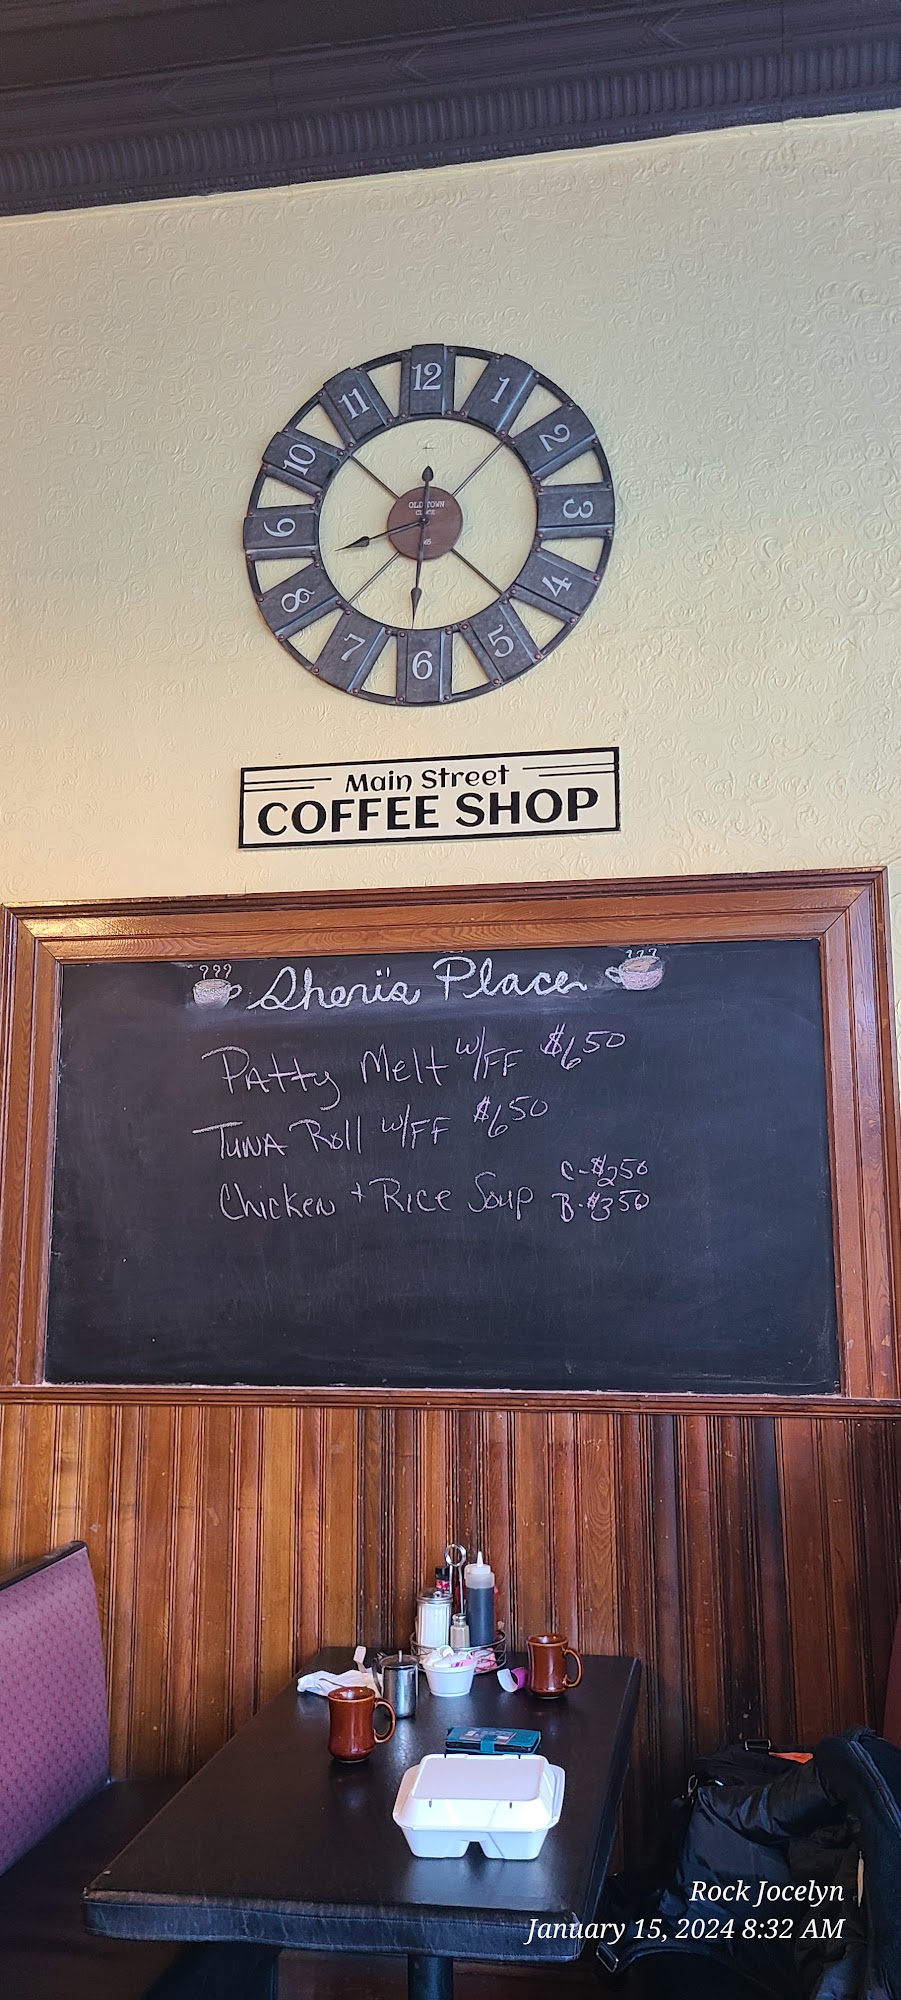 12
11 1
10 2
9 3
8 4
7 5
6
OLD TOWN
CLOCK
Main Street
COFFEE SHOP
Sheri's Place
Patty Melt w/FF $6.50
Tuna Roll w/FF $6.50
Chicken + Rice Soup C-$2.50
B-$3.50
Rock Jocelyn
January 15, 2024 8:32 AM